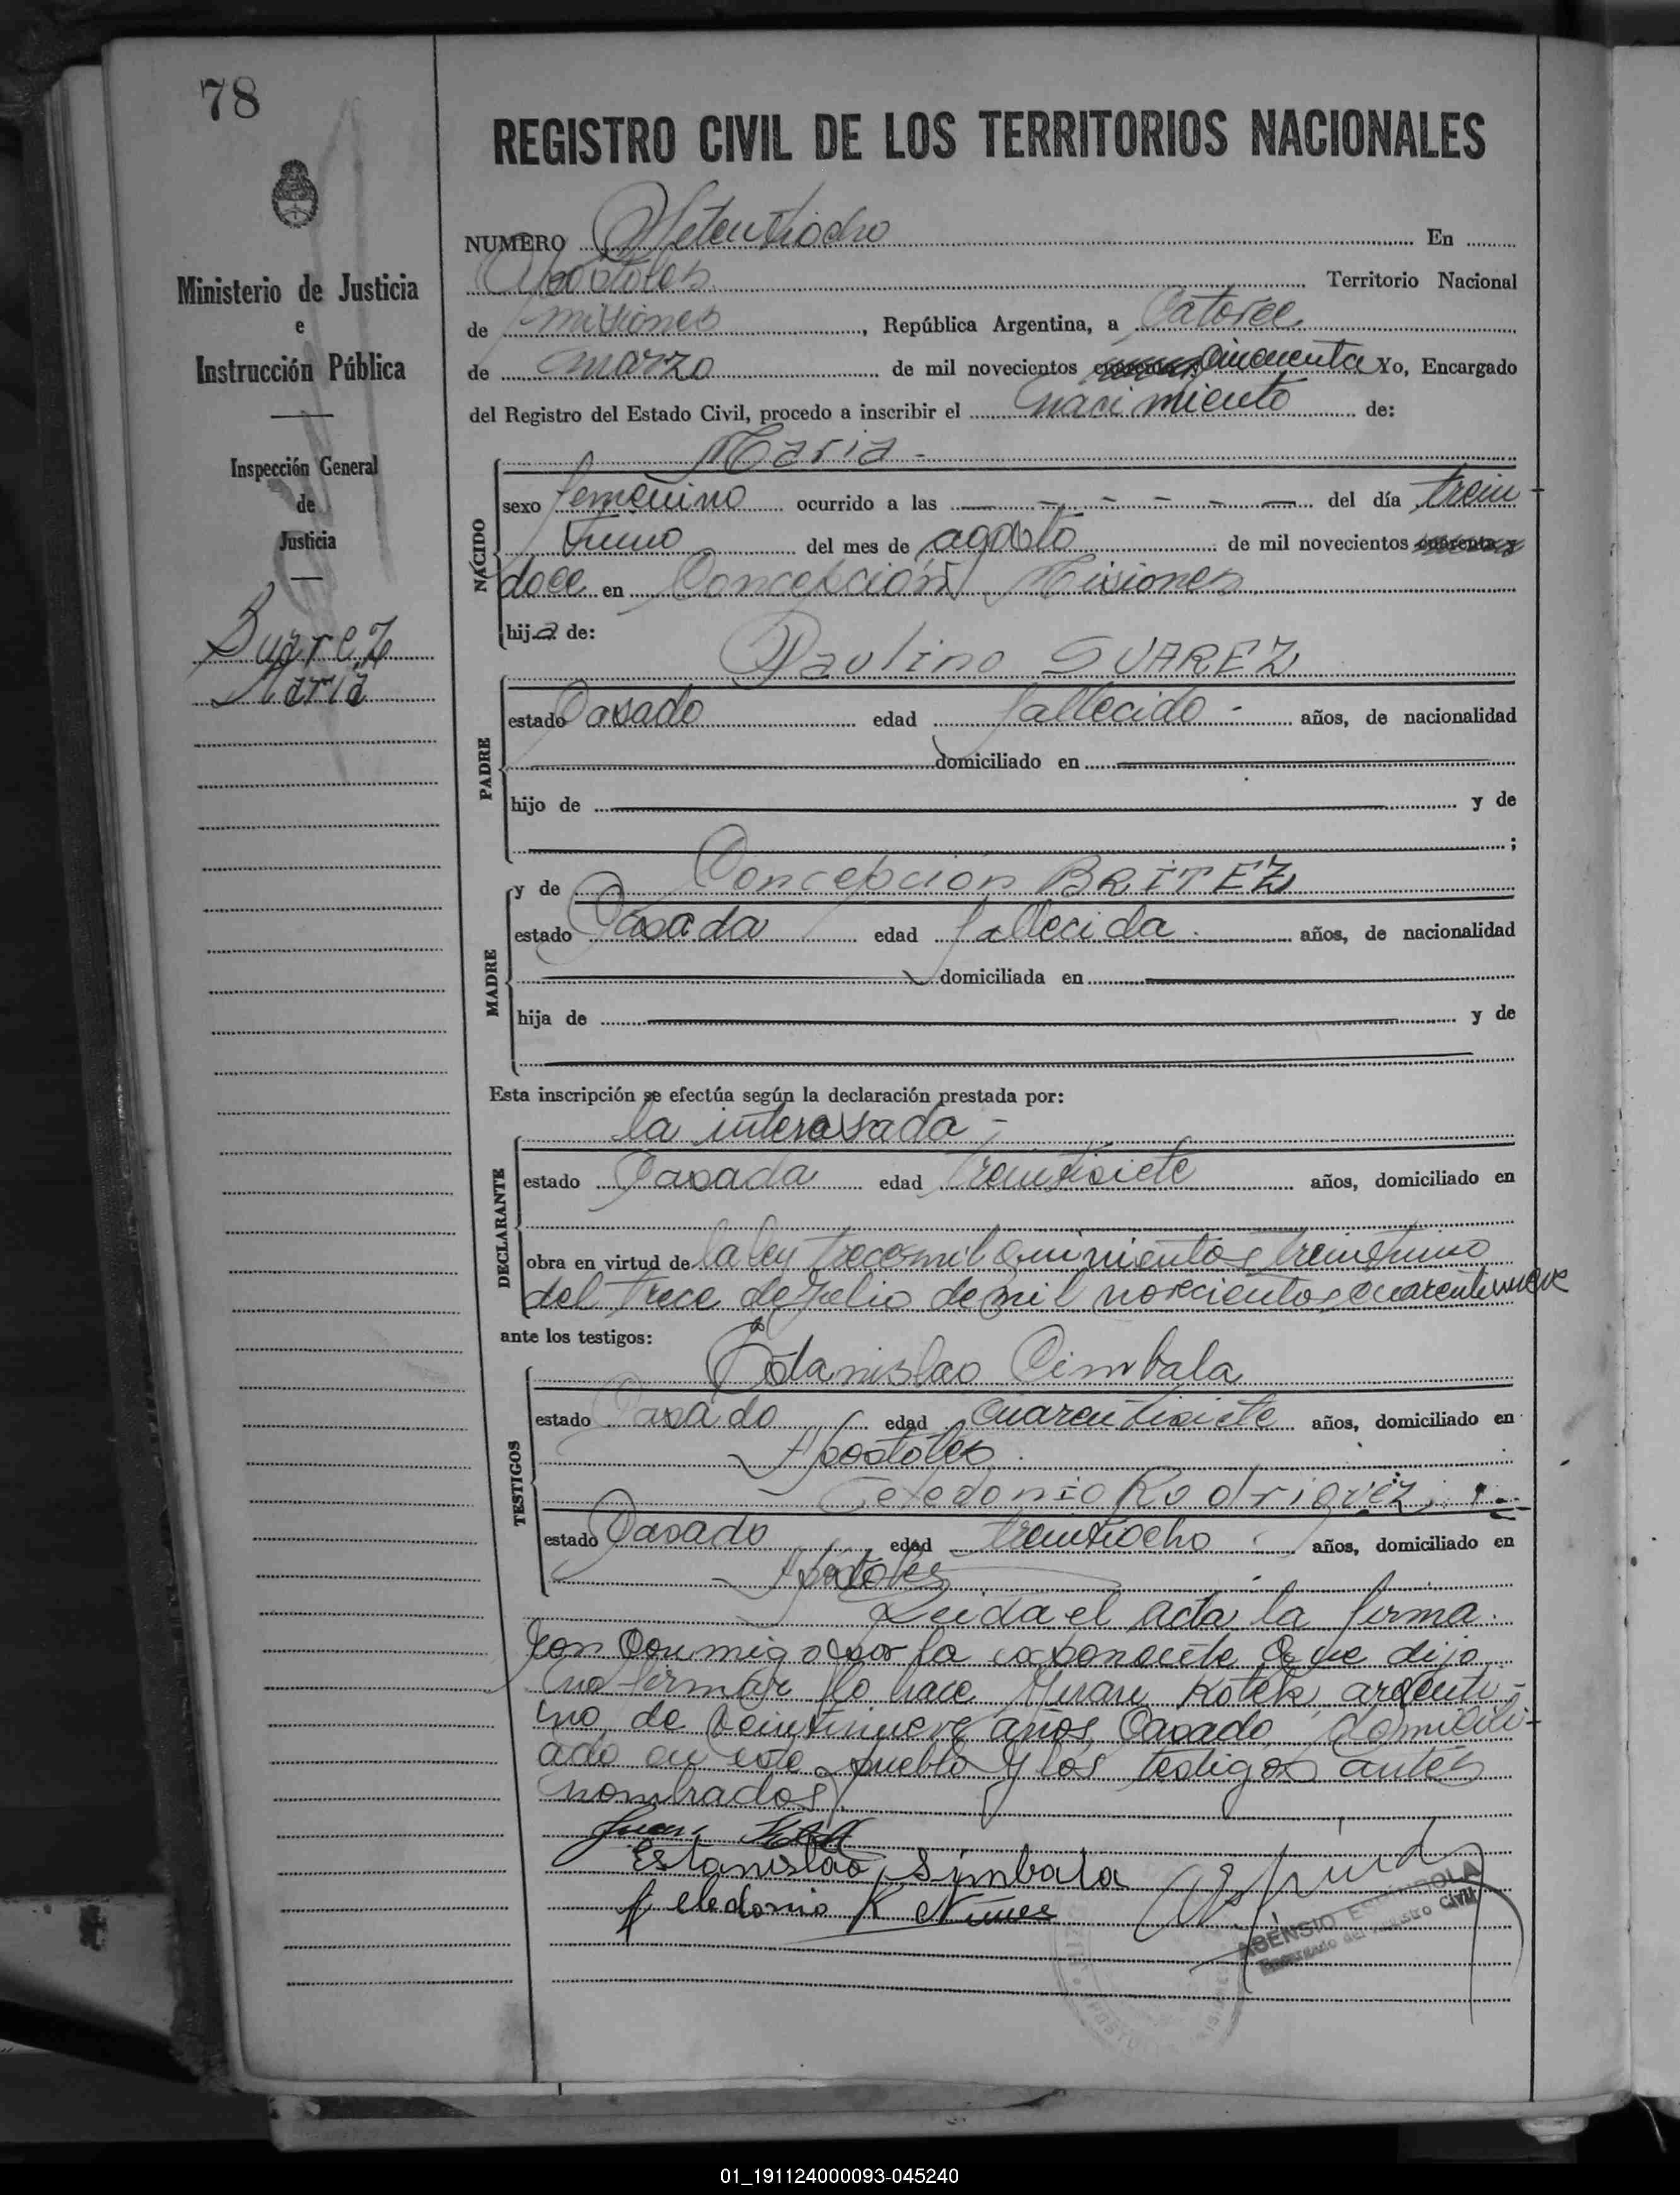 78
Ministerio de Justicia
e
Instrucción Pública
Inspección General
de
Justicia
Suarez
Maria
REGISTRO CIVIL DE LOS TERRITORIOS NACIONALES
NUMERO Setentiocho En
Apostoles Territorio Nacional
de misiones, República Argentina, a Catorce
de marzo de mil novecientos cincuenta Yo, Encargado
del Registro del Estado Civil, procedo a inscribir el nacimiento de:
NACIDO
Maria -
sexo femenino ocurrido a las — — — — — — del día trein-
tiuno del mes de agosto de mil novecientos cuarenta y
doce en Concepción Misiones
hija de:
PADRE
Paulino SUAREZ
estado Casado edad fallecido - años, de nacionalidad
domiciliado en
hijo de y de
;
MADRE
y de Concepción BRITEZ
estado Casada edad fallecida. años, de nacionalidad
domiciliada en
hija de y de
Esta inscripción se efectúa según la declaración prestada por:
DECLARANTE
la interesada -
estado Casada edad treintisiete años, domiciliado en
obra en virtud de la ley trece mil quinientos treintiuno
del trece de Julio de mil novecientos cuarentinueve
ante los testigos:
TESTIGOS
Estanislao Cimbala
estado Casado edad cuarentisiete años, domiciliado en
Apostoles.
Celedonio Rodriguez
estado Casado edad treintiocho años, domiciliado en
Apostoles
Leida el acta la firma
ron conmigo por la exponente que dijo
no firmar lo hace Juan Kotek argenti-
no de veintinueve años, Casado, domicili-
ado en este pueblo y los testigos antes
nombrados
Juan
Estanislao Simbala
Celedonio R Nunes
ASENSIO ESPINDOLA
Encargado del Registro Civil
01_191124000093-045240